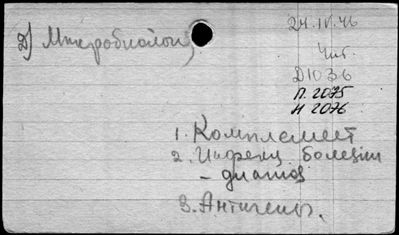 Д) Микробиологи
24.IV.46
Чит.
D1036
П. 2075
Н 2076
1. Комплемент
2. Инфекц. болезни
- диагноз
3. Антигены.